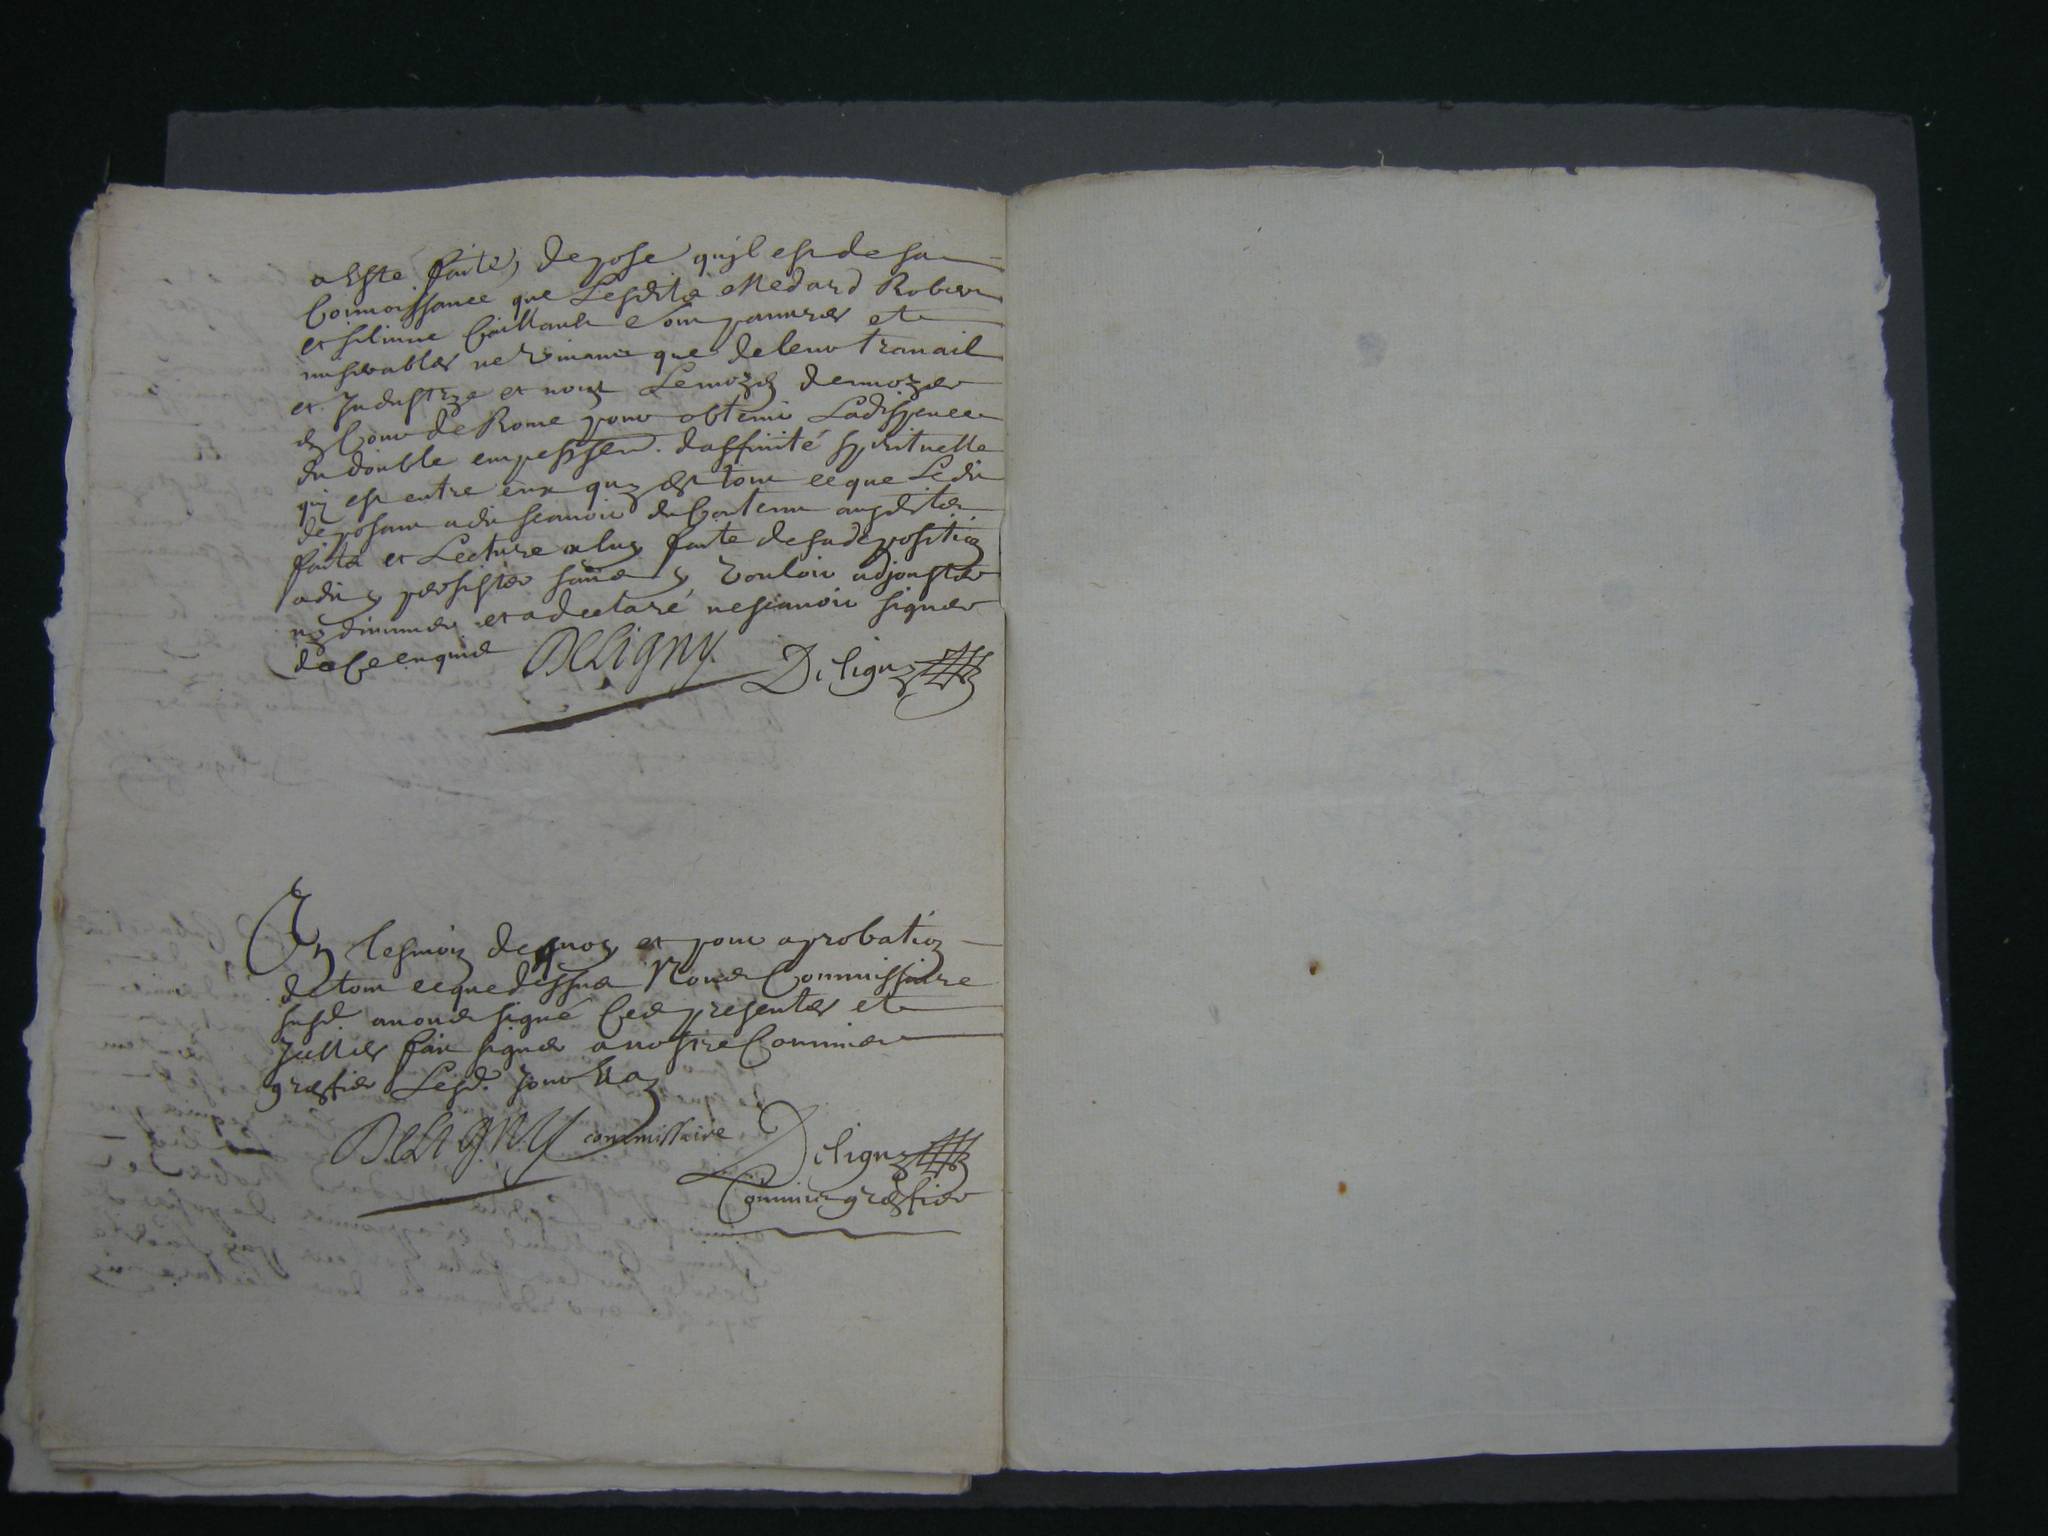 a esté faite, depose qu'jl est de sa
Connoissance que Lesdits Medard Robert
et  Caillault sont pauures et
miserables ne viuant que de leur trauail
et Industrye et nont Le moyen denuoyer
en Cour de Rome pour obtenir La dispence
du double empeschem. daffinité spirituelle
qui est entre eux quy est tout ce que Ledit
deposant a dit scauoir du Contenu ausdits
faits et Lecture a luy faite de sa deposition
a dit y persister sans y vouloir adjouster
ny diminuer et a declaré ne scauoir signer
de ce enquis Deligny. Deligny
En tesmoin dequoy et pour aprobation
de tout ce que dessus Nous Commissaire
susd. auons signé Ces presentes et
Icelles fait signer a nostre Commis
greffier Lesd. jour
Deligny commissaire Deligny
Commis greffier